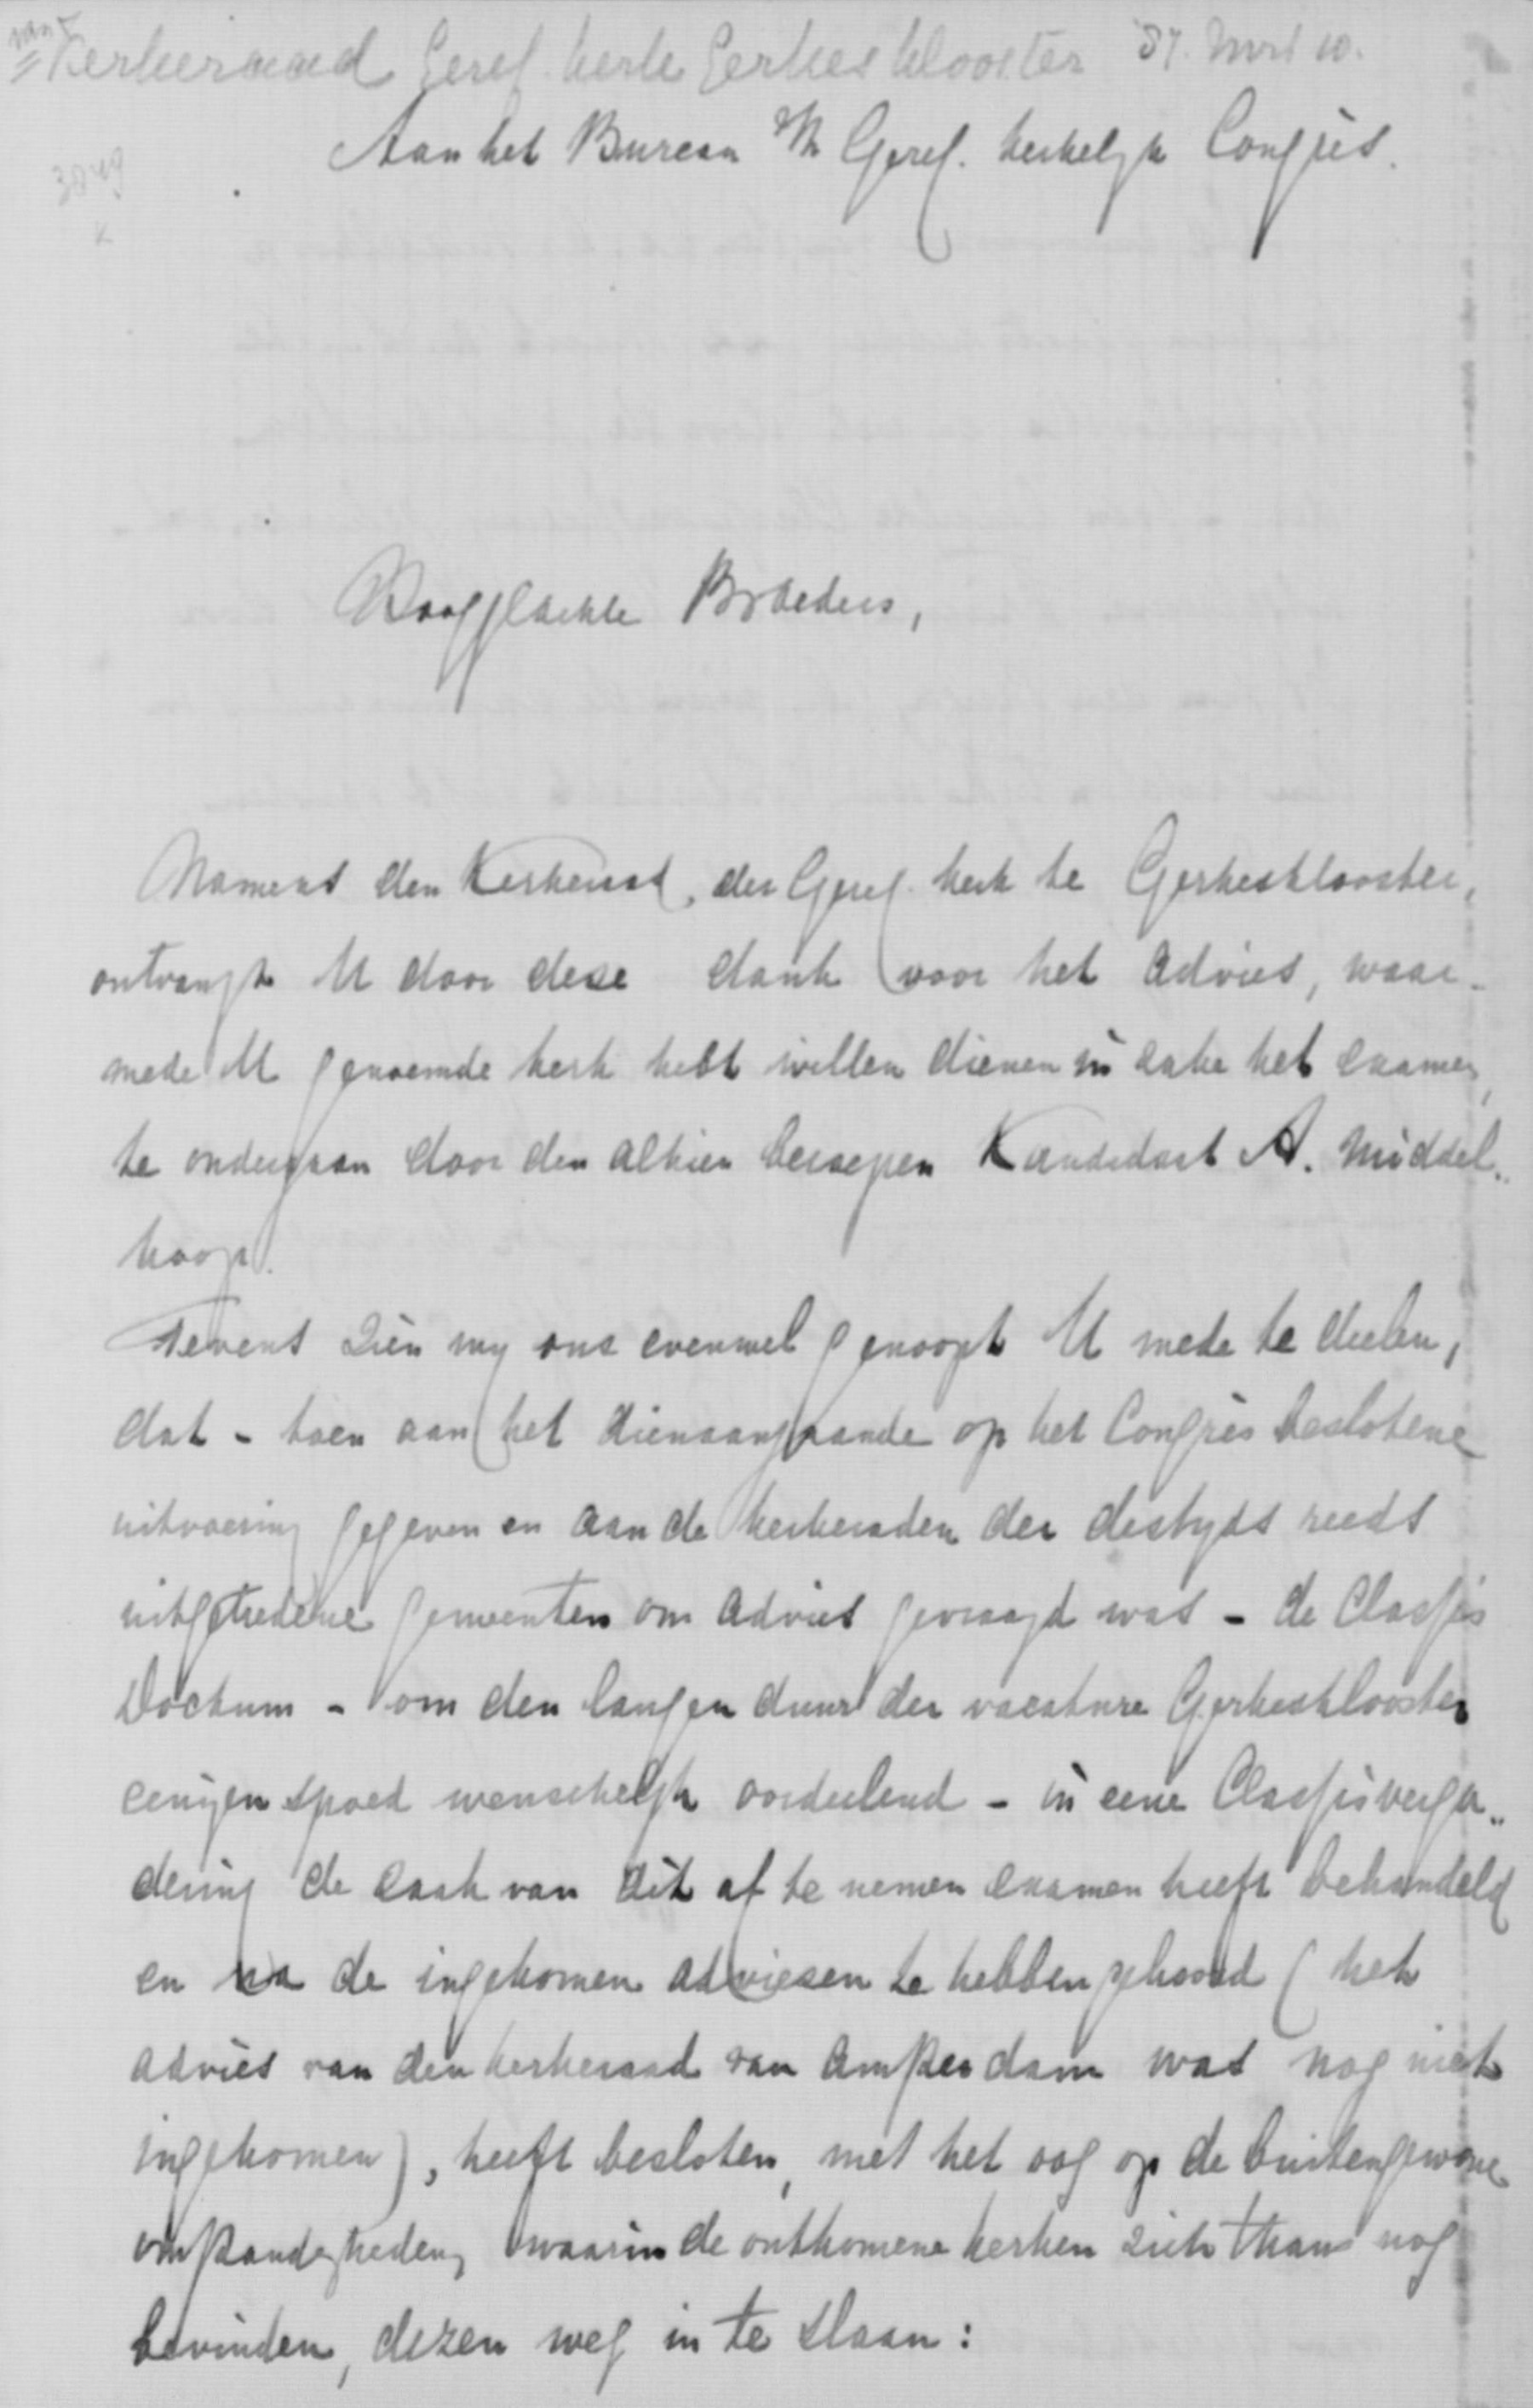 van
Kerkeraad Geref. kerk Gerkesklooster 87. Mrt 10.
3049
Aan het Bureau v/h Geref. kerkelijk Congres.
Hooggeachte Broeders,
Namens den Kerkeraad, der Geref. kerk te Gerkesklooster,
ontvangt U door deze dank voor het advies, waar-
mede U genoemde kerk hebt willen dienen in zake het examen,
te ondergaan door den alhier beroepen Kandidaat A. Middel-
koop.
Tevens zien wij ons evenwel genoopt U mede te deelen,
dat - toen aan het dienaangaande op het Congres beslotene
uitvoering gegeven en aan de kerkeraden der destyds reeds
uitgetredene gemeenten om advies gevraagd was - de Classis
Dockum - om den langen duur der vacature Gerkesklooster
eenigen spoed wenschelijk oordeelend - in eene Classisverga-
dering de zaak van dit af te nemen examen heeft behandeld
en na de ingekomen adviezen te hebben gehoord (het
advies van den kerkeraad van Amsterdam was nog niet
ingekomen), heeft besloten, met het oog op de buitengewone
omstandigheden, waarin de ontkomene kerken zich thans nog
bevinden, dezen weg in te slaan: